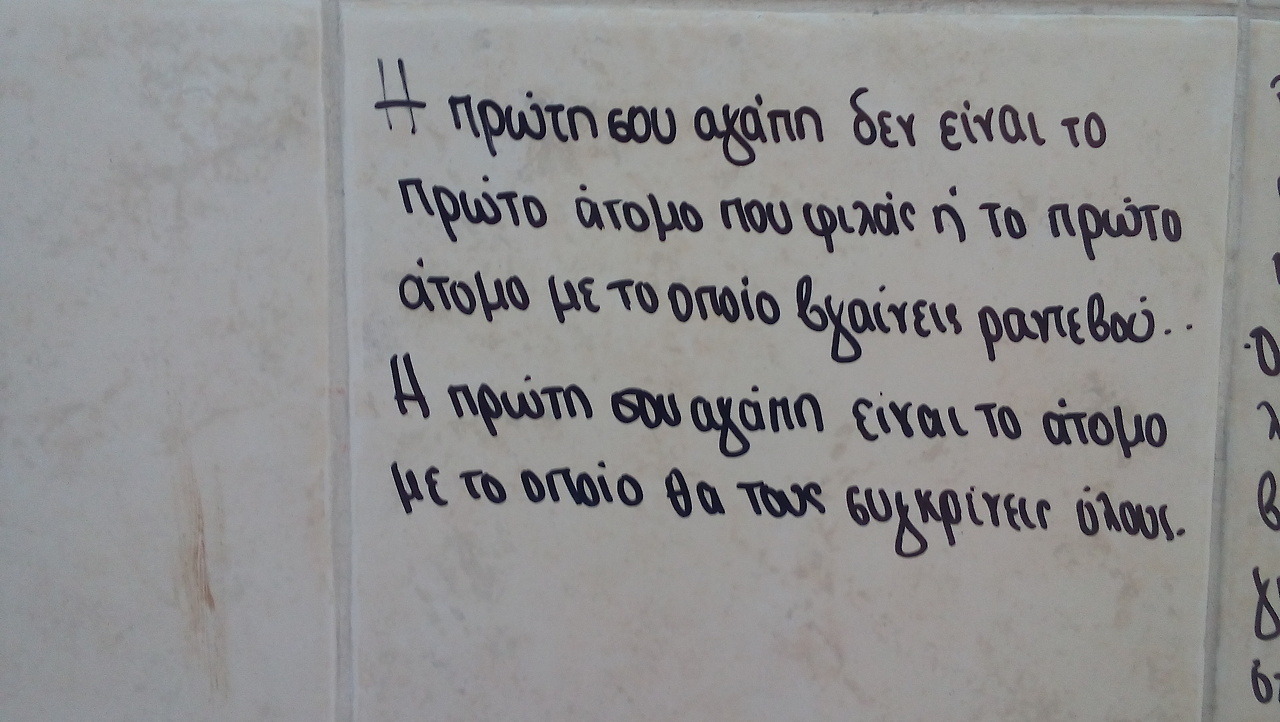 Η πρώτη σου αγάπη δεν είναι το
πρώτο άτομο που φιλάς ή το πρώτο
άτομο με το οποίο βγαίνεις ραντεβού..
Η πρώτη σου αγάπη είναι το άτομο
με το οποίο θα τους συγκρίνεις όλους.